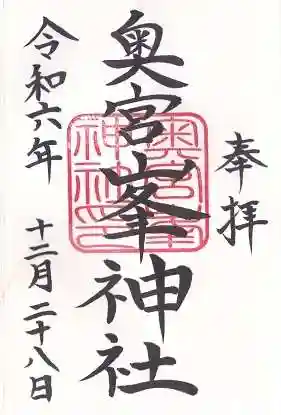 奉拝
奥宮峯神社
奥宮峯
神社之印
令和六年
十二月二十八日